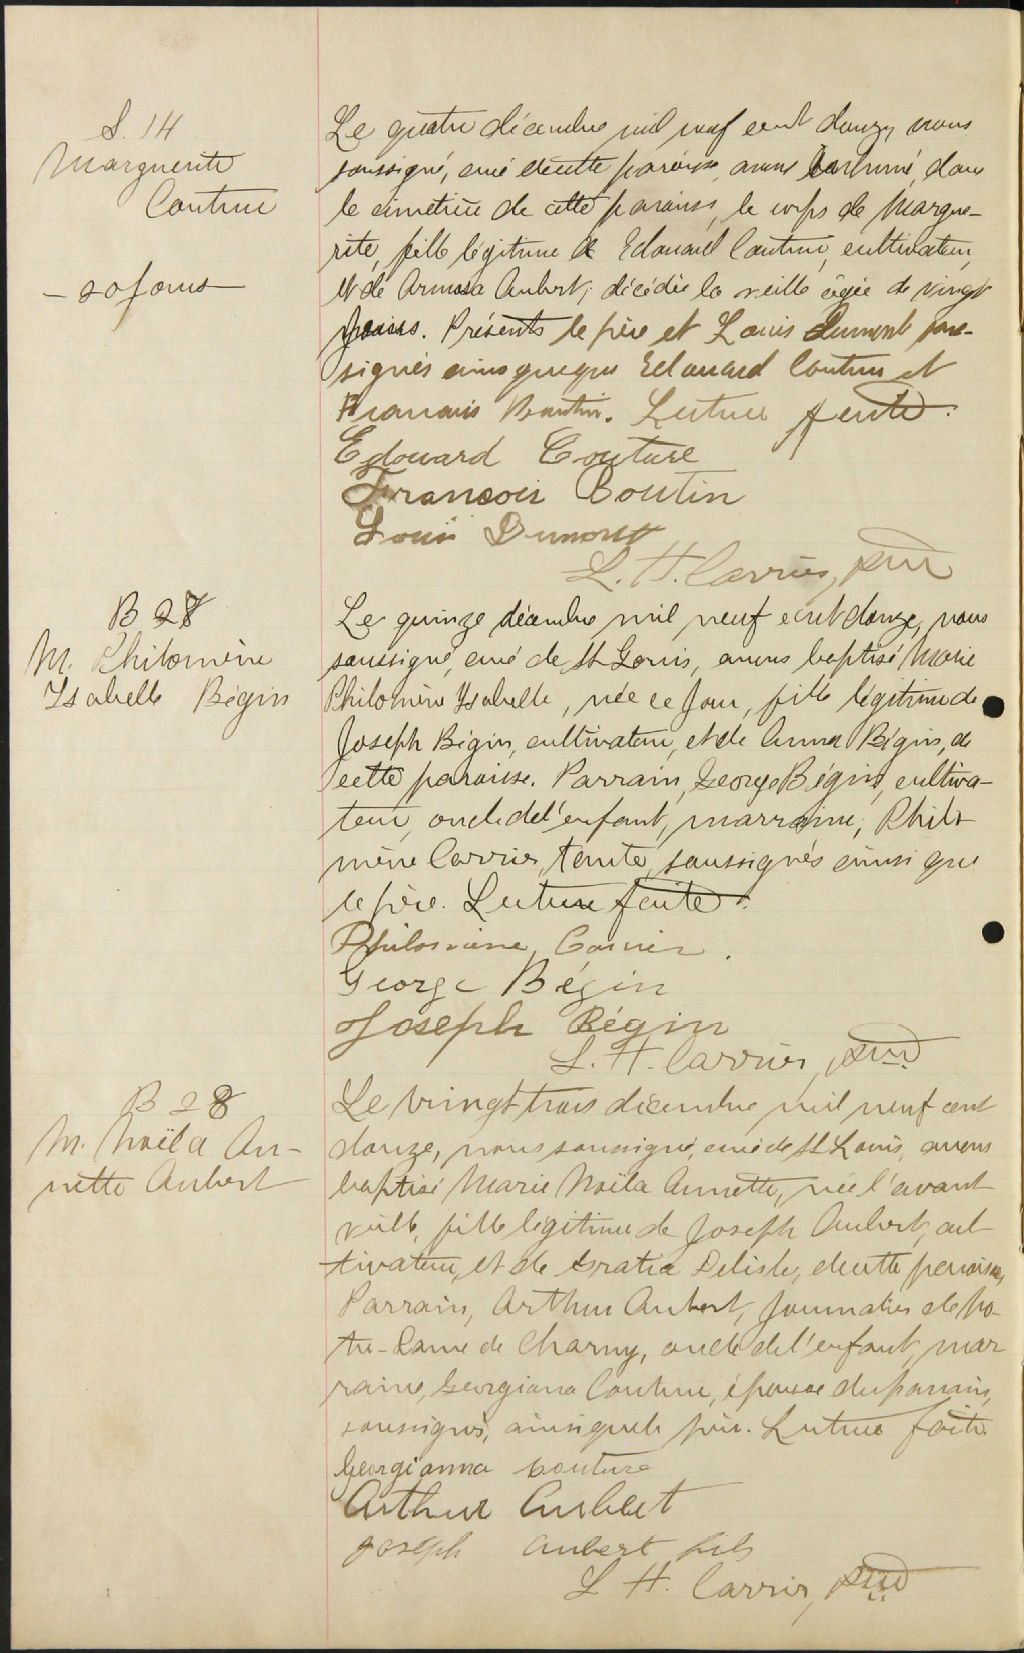 S. 14
Marguerite
Couture
- 20 jours -
Le quatre décembre mil neuf cent douze, nous
soussigné, curé de cette paroisse, avons inhumé, dans
le cimetière de cette paroisse, le corps de Margue-
rite, fille légitime de Edouard Couture, cultivateur,
et de Armosa Aubert, décédée la veille âgée de vingt
jours. Présents le père et Louis Dumont sous-
signés ainsi que Edouard Couture et
Francois Boutin. Lecture faite.
Edouard Couture
Francois Boutin
Louis Dumont
L. H. Carrier, ptre
B 27
M. Philomène
Ysabelle Bégin
Le quinze décembre mil neuf cent douze, nous
soussigné, curé de St Louis, avons baptisé Marie
Philomène Ysabelle, née ce jour, fille légitime de
Joseph Bégin, cultivateur, et de Anna Bégin, de
cette paroisse. Parrain, George Bégin, cultiva-
teur, oncle de l'enfant, marraine, Philo
mène Carrier, tante, soussignés ainsi que
le père. Lecture faite.
Philomène Carrier.
George Bégin
Joseph Bégin
L. H. Carrier, ptre
B 28
M. Noëla An-
nette Aubert
Le vingt trois décembre mil neuf cent
douze, nous soussigné, curé de St Louis, avons
baptisé Marie Noëla Annette, née l'avant
veille, fille légitime de Joseph Aubert, cul
tivateur, et de Gratia Delisle, de cette paroisse,
Parrain, Arthur Aubert, journalier de No-
tre-Dame de Charny, oncle de l'enfant, mar
raine, Georgiana Couture, épouse du parrain,
soussignés, ainsi que le père. Lecture faite.
Georgianna couture
Arthur Aubert
Joseph Aubert fils
L H. Carrier, ptre